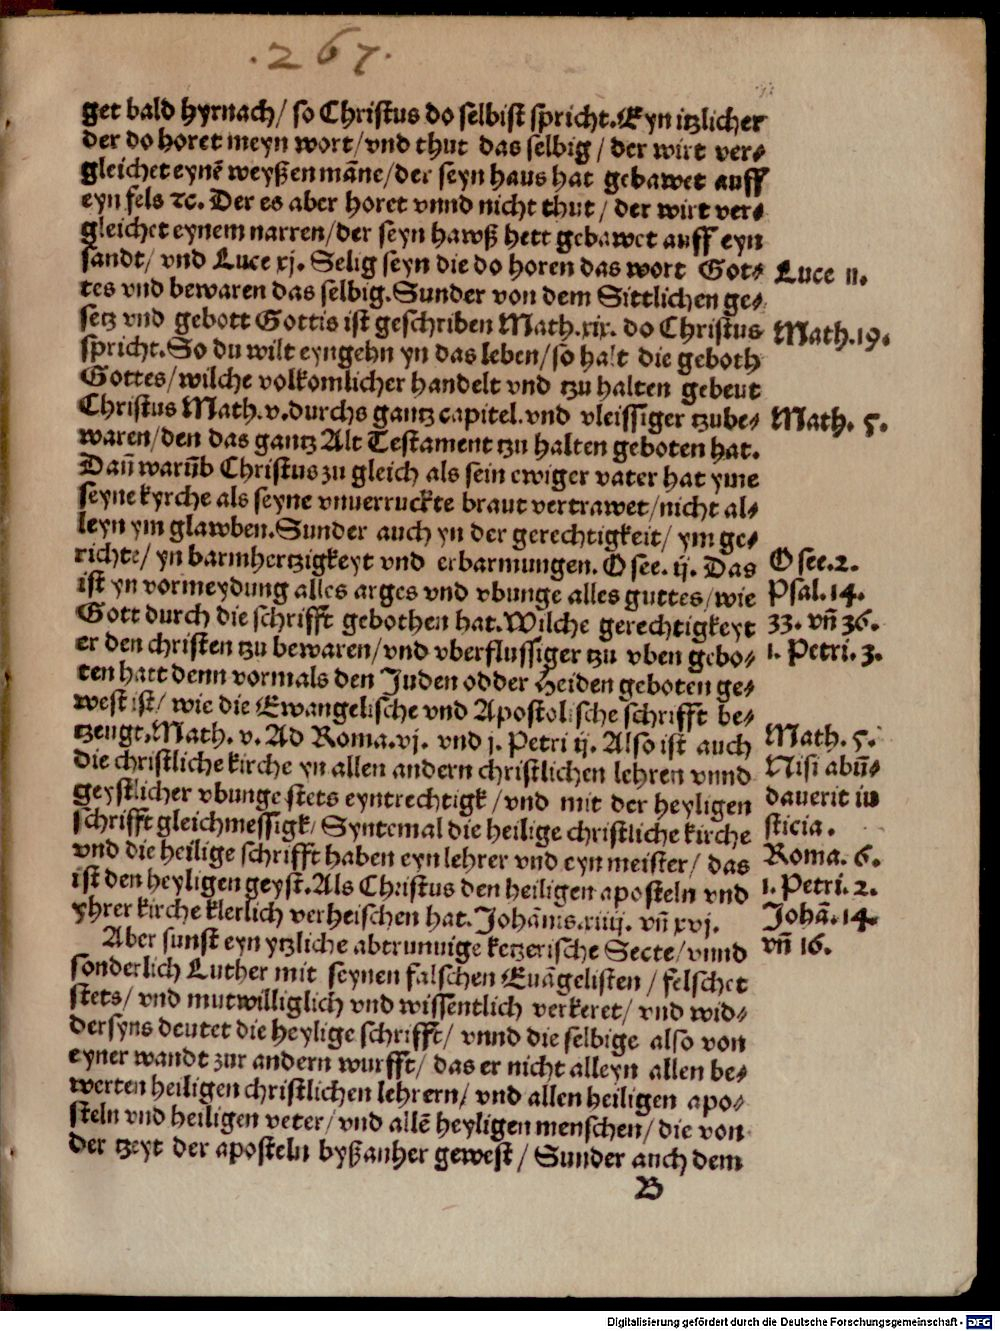 .267.
get bald hyrnach/ so Christus do selbist spricht. Eyn itzlicher
der do horet meyn wort/ vnd thut das selbig/ der wirt ver⸗
gleichet eynē weyßen māne/ der seyn haus hat gebawet auff
eyn fels ꝛc. Der es aber horet vnnd nicht thut/ der wirt ver⸗
gleichet eynem narren/ der seyn hawß hett gebawet auff eyn
sandt/ vnd Luce xj. Selig seyn die do horen das wort Got⸗
Luce 11.
tes vnd bewaren das selbig. Sunder von dem Sittlichen ge⸗
setz vnd gebott Gottis ist geschriben Math. xix. do Christus
Math. 19.
spricht. So du wilt eyngehn yn das leben/ so halt die geboth
Gottes/ wilche volkomlicher handelt vnd tzu halten gebeut
Christus Math. v. durchs gantz capitel. vnd vleissiger tzube⸗
Math. 5.
waren/ den das gantz Alt Testament tzu halten geboten hat.
Dañ warūb Christus zu gleich als sein ewiger vater hat yme
seyne kyrche als seyne vnuerruckte braut vertrawet/ nicht al⸗
leyn ym glawben. Sunder auch yn der gerechtigkeit/ ym ge⸗
richte/ yn barmhertzigkeyt vnd erbarmungen. Osee. ij. Das
Osee. 2.
ist yn vormeydung alles arges vnd vbunge alles guttes/ wie
Psal. 14.
Gott durch die schrifft gebothen hat. Wilche gerechtigkeyt
33. vñ 36.
er den christen tzu bewaren/ vnd vberflussiger tzu vben gebo⸗
1. Petri. 3.
ten hatt denn vormals den Juden odder Heiden geboten ge⸗
west ist/ wie die Ewangelische vnd Apostolische schrifft be⸗
tzeugt. Math. v. Ad Roma. vj. vnd j. Petri ij. Also ist auch
Math. 5.
die christliche kirche yn allen andern christlichen lehren vnnd
Nisi abūn⸗
geystlicher vbunge stets eyntrechtigk/ vnd mit der heyligen
dauerit iu
schrifft gleichmessigk/ Syntemal die heilige christliche kirche
sticia.
vnd die heilige schrifft haben eyn lehrer vnd eyn meister/ das
Roma. 6.
ist den heyligen geyst. Als Christus den heiligen aposteln vnd
1. Petri. 2.
yhrer kirche klerlich verheischen hat. Johānis. xiiij. vñ xvj.
Johā. 14.
vñ 16.
Aber sunst eyn ytzliche abtrunnige ketzerische Secte/ vnnd
sonderlich Luther mit seynen falschen Euāgelisten/ felschet
stets/ vnd mutwilliglich vnd wissentlich verkeret/ vnd wid⸗
dersyns deutet die heylige schrifft/ vnnd die selbige also von
eyner wandt zur andern wurfft/ das er nicht alleyn allen be⸗
werten heiligen christlichen lehrern/ vnd allen heiligen apo⸗
steln vnd heiligen veter/ vnd allē heyligen menschen/ die von
der tzeyt der aposteln byßanher gewest/ Sunder auch dem
B
Digitalisierung gefördert durch die Deutsche Forschungsgemeinschaft - DFG